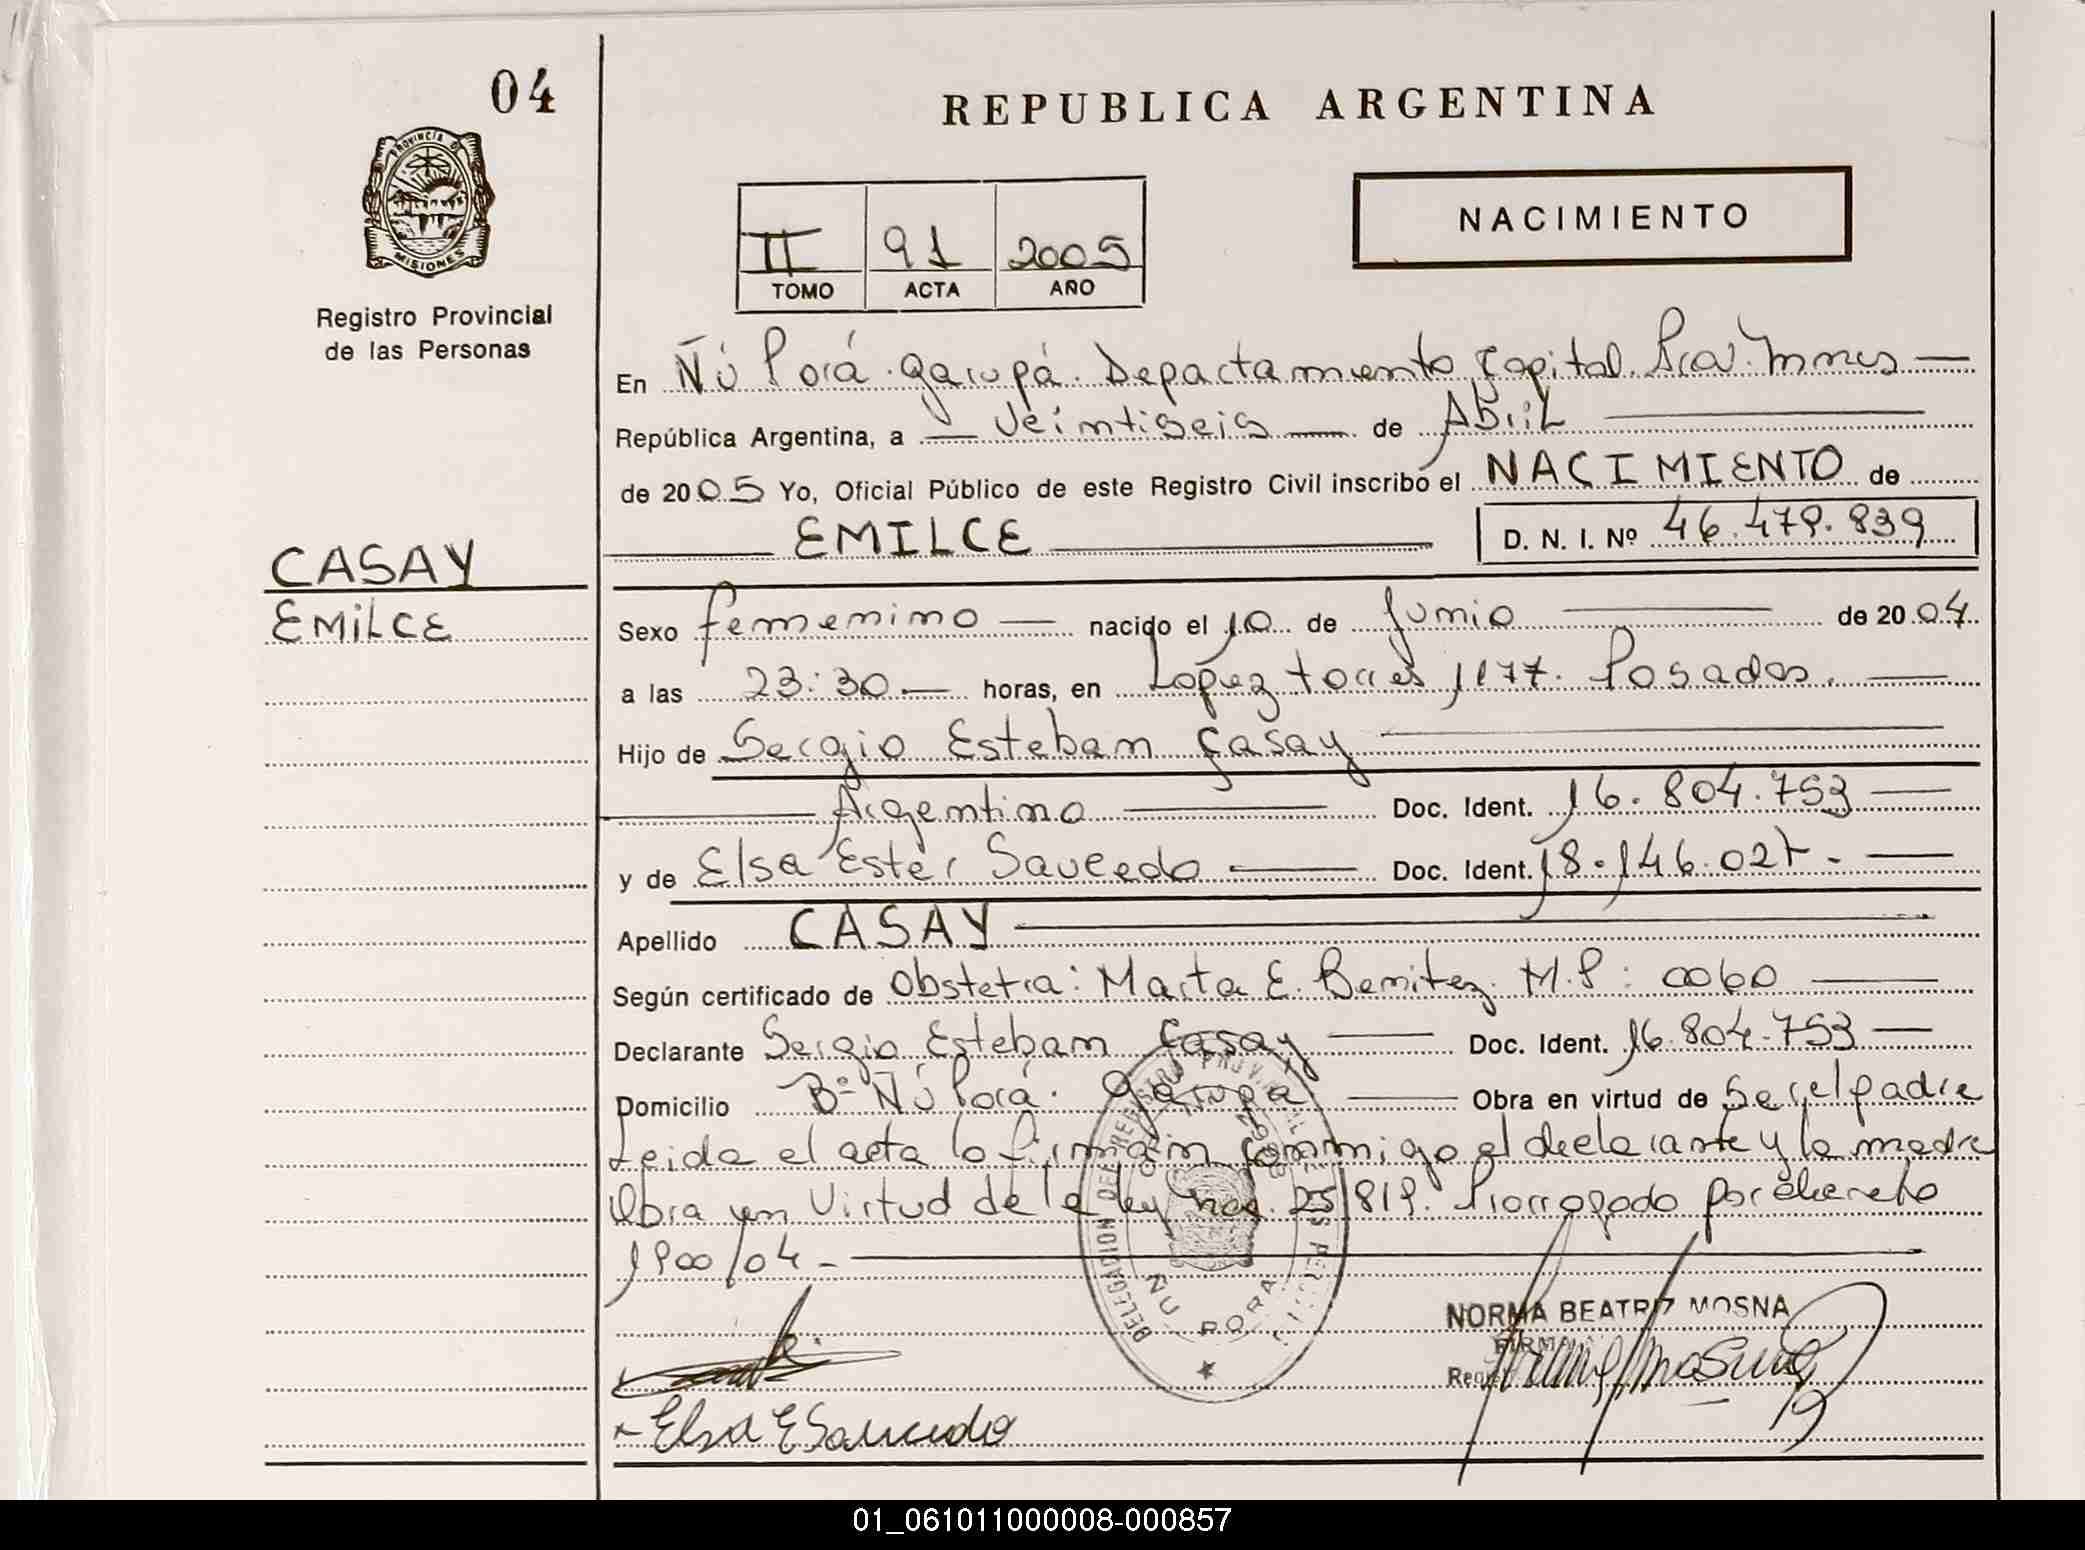 04
REPUBLICA ARGENTINA
PROVINCIA DE
MISIONES
Registro Provincial
de las Personas
II 91 2005
TOMO ACTA AÑO
NACIMIENTO
En Ñú Porá. Garupá. Departamento Capital. Pcia. Mnes
República Argentina, a Veintiseis de Abril
de 2005 Yo, Oficial Público de este Registro Civil inscribo el NACIMIENTO de
EMILCE D. N. I. Nº 46.479.839
CASAY
EMILCE
Sexo femenino nacido el 10 de Junio de 2004
a las 23:30 horas, en Lopez torres 1177. Posadas.
Hijo de Sergio Esteban Casay
Argentino Doc. Ident. 16.804.753
y de Elsa Ester Saucedo Doc. Ident. 18.146.027.
Apellido CASAY
Según certificado de Obstetra: Marta E. Benitez. M.P: 0060
Declarante Sergio Esteban Casay Doc. Ident. 16.804.753
Domicilio Bº Ñú Porá. Garupá Obra en virtud de Ser el padre
Leida el acta lo firman conmigo el declarante y la madre
Obra en Virtud de la ley nro. 25819. Prorrogado por decreto
1900/04.
DELEGACION DEL REGISTRO PROVINCIAL DE LAS PERSONAS
ÑU PORA
NORMA BEATRIZ MOSNA
FIRMA
Elsa E Saucedo
01_061011000008-000857